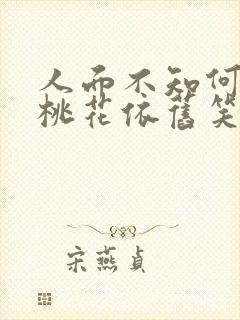 人面不知何
桃花依舊笑
宋燕貞